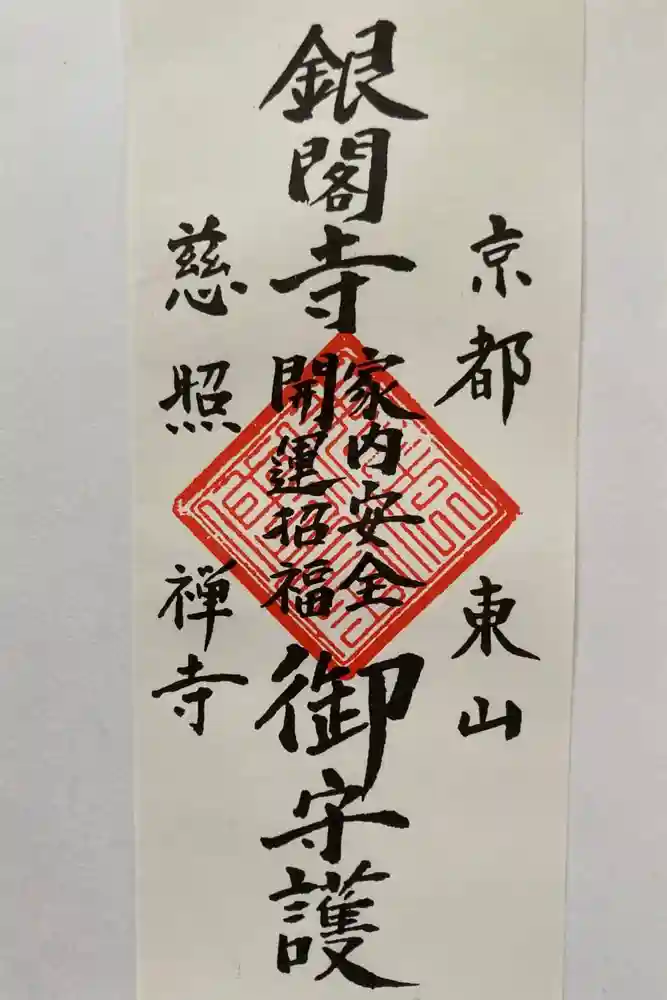 京都 東山
銀閣寺
家内安全
開運招福
御守護
慈照禅寺